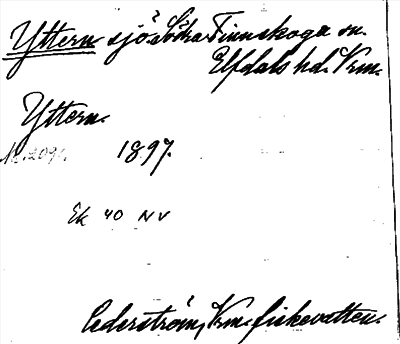 Yttern sjö i Södra Finnskoga sn.
Elfdals hd. Vrm.
Yttern.
1897.
Ek 40 NV
Cederström, Vrm. fiskevatten.